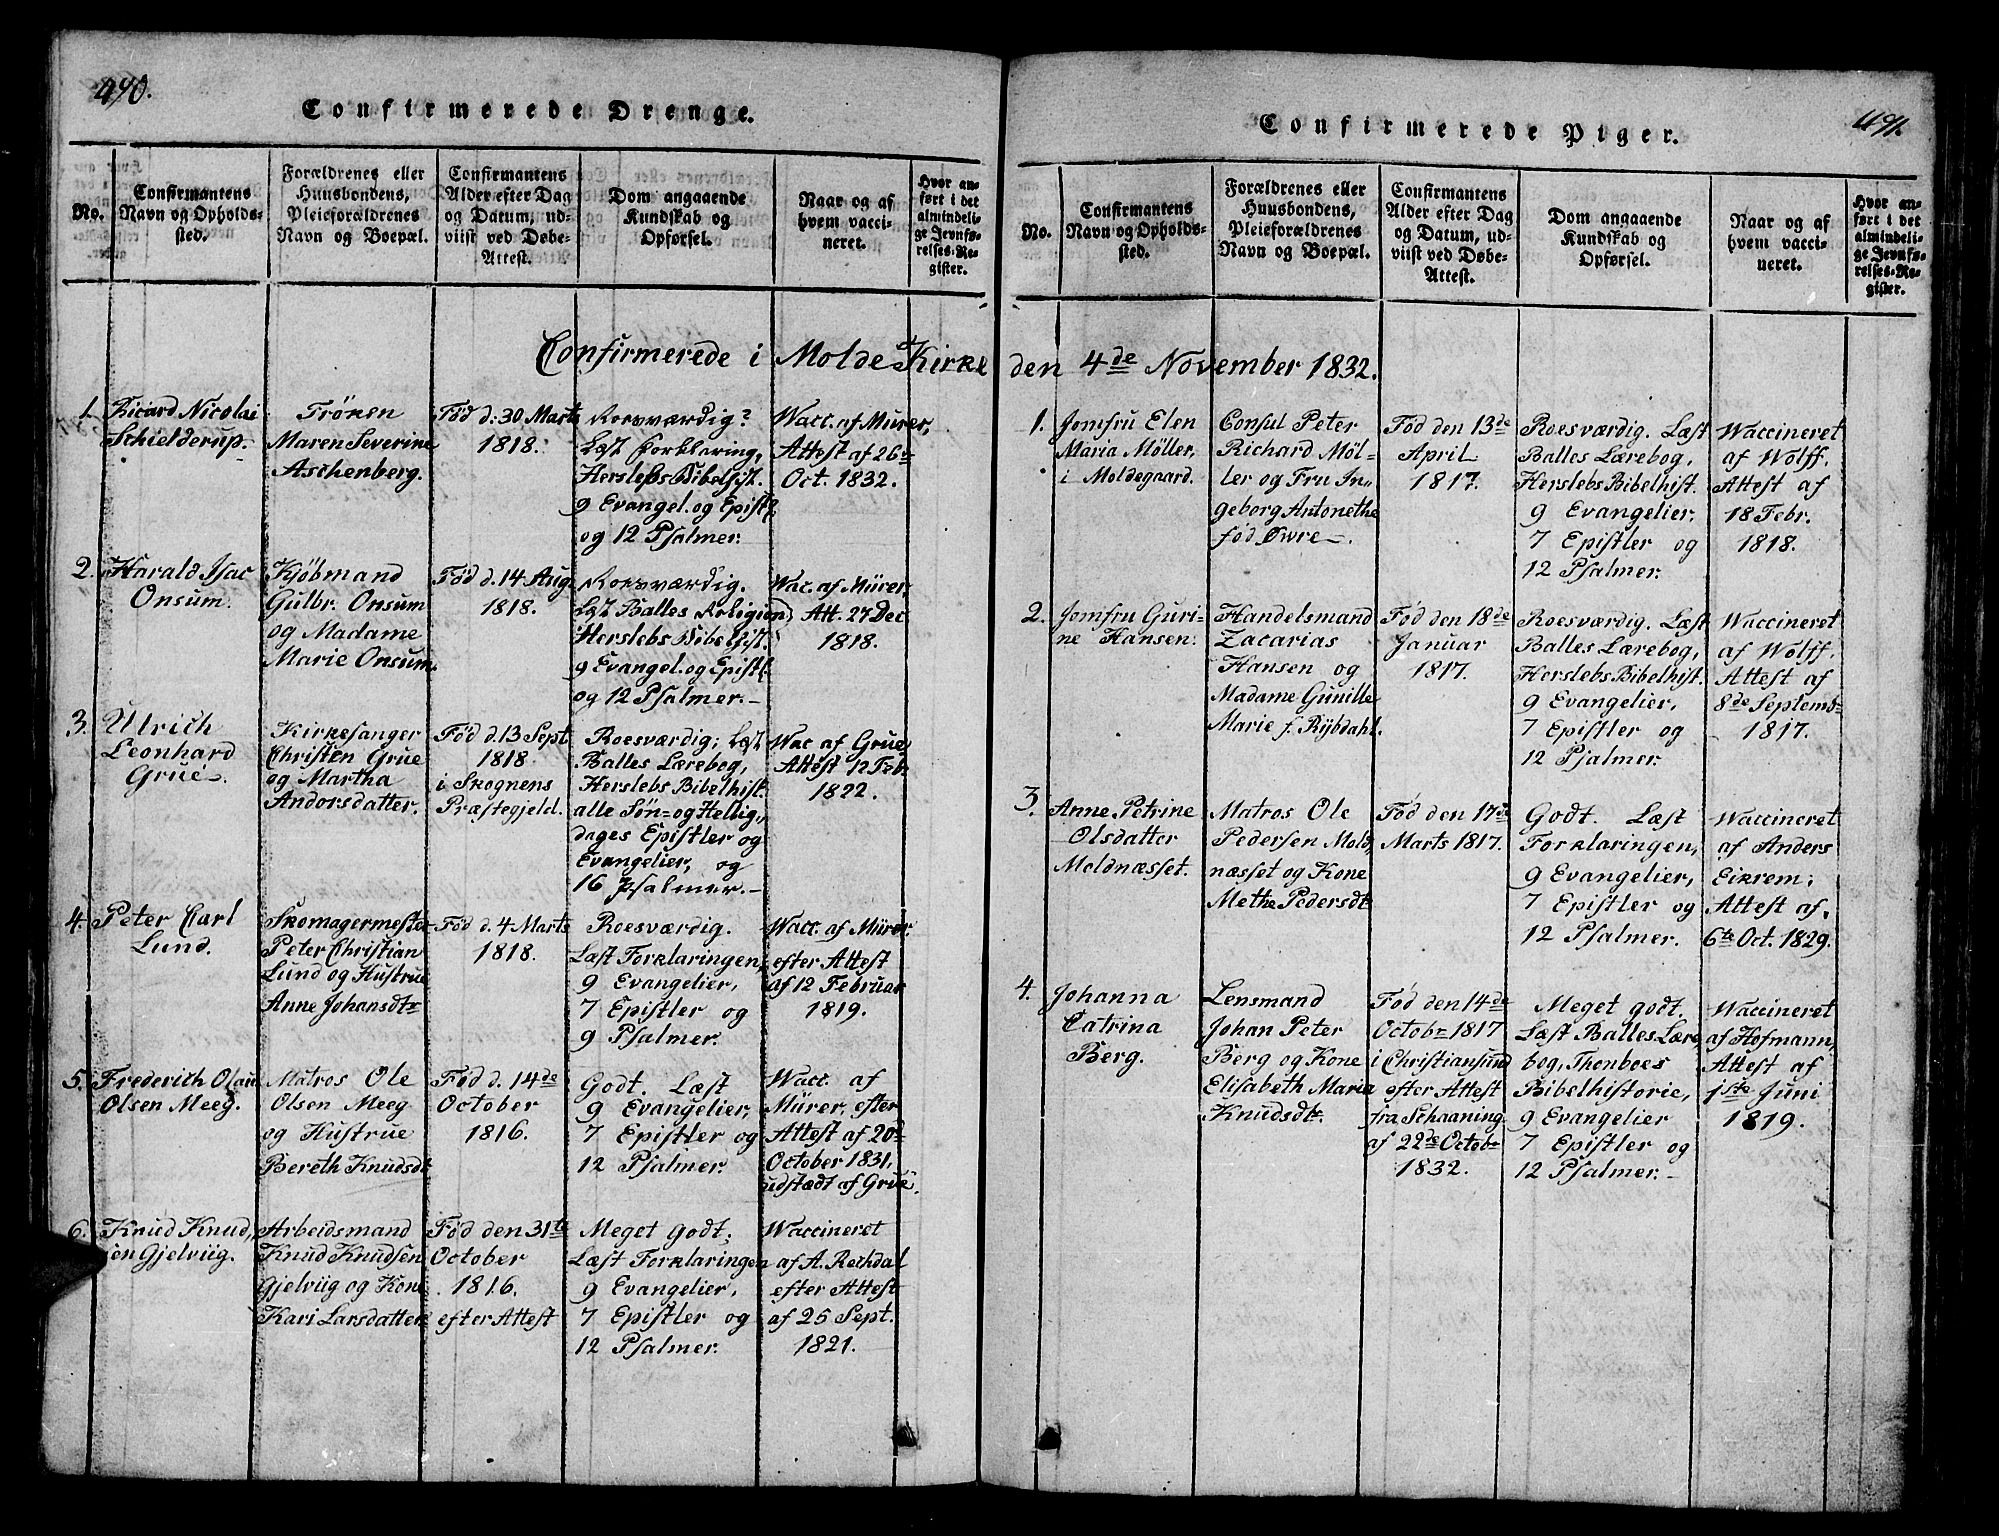 490.
Confirmerede Drenge.
No.
Confirmantens
Navn og Opholds-
sted.
Forældrenes eller
Huusbondens,
Pleieforældrenes
Navn og Boepæl.
Confirmantens
Alder efter Dag
og Datum, ud-
viist ved Døbe-
Attest.
Dom angaaende
Kundskab og
Opførsel.
Naar og af
hvem vacci-
neret.
Hvor an-
ført i det
almindeli-
ge Jevnfø-
relses-Re-
gister.
Confirmerede i Molde Kirke
1.
Ricard Nicolai
Schielderup.
Fröken
Maren Severine
Aschenberg.
Fød d. 30 Marts
1818.
Roesværdig?
Læst Forklaring,
Herslebs Bibelhist.
9 Evangel. og Epistl.
og 12 Psalmer.
Wacc. af Mürer,
Attest af 26de
Oct. 1832.
2.
Harald Isac
Onsum.
Kjöbmand
Gulbr. Onsum
og Madame
Marie Onsum.
Fød d. 14 Aug.
1818.
Roesværdig.
Læst Balles Religion
Herslebs Bibelhist.
9 Evangel. og Epistl.
og 12 Psalmer.-
Wac. af Mürer,
Att. 27 Dec.
1818.
3.
Ulrich
Leonhard
Grue-.
Kirkesanger
Christen Grue
og Martha
Andorsdatter.
Fød d. 13 Sept.
1818
i Skognens
Præstegjeld.
Roesværdig; Læst
Balles Lærebog,
Herslebs Bibelhist.
alle Søn- og Hellig-
dages Epistler og
Evangelier, og
16 Psalmer.-
Wac. af Grue,
Attest 12 Feb.
1822.
4.
Peter Carl
Lund.
Skomagermester
Peter Christian
Lund og Hustrue
Anne Johansdtr
Fød d. 4 Marts
1818.
Roesværdig.
Læst Forklaringen,
9 Evangelier,
7 Epistler og
9 Psalmer.
Wacc. af Mürer.
efter Attest
af 12 Februar
1819.
5.
Frederich Olaus
Olsen Meeg.
Matros Ole
Olsen Meeg
og Hustrue
Bereth Knudsdtr
Fød d. 14de
October
1816.
Godt. Læst
9 Evangelier,
7 Epistler og
12 Psalmer.
Wacc. af
Mürer, efter
Attest af 20de
October 1831,
udstædt af Grue.
6.
Knud Knud,
sen Gjelviig.
Arbeidsmand
Knud Knudsen
Gjelviig og Kone
Kari Larsdatter
Fød den 31te
October
1816.
efter Attest
Meget godt.
Læst Forklaringen
9 Evangelier,
7 Epistler og
12 Psalmer.
Waccineret
af A. Rechdal
efter Attest
af 25 Sept.
1821.
491.
Confirmerede Piger.
No.
Confirmantens
Navn og Opholds-
sted.
Forældrenes eller
Huusbondens,
Pleieforældrenes
Navn og Boepæl.
Confirmantens
Alder efter Dag
og Datum, ud-
viist ved Døbe-
Attest.
Dom angaaende
Kundskab og
Opførsel.
Naar og af
hvem vacci-
neret.
Hvor an-
ført i det
almindeli-
ge Jevnfø-
relses-Re-
gister.
den 4de November 1832.
1.
Jomfru Elen
Maria Möller,
i Moldegaard.
Consul Peter
Richard Möl-
ler og Fru In-
geborg Antonethe
fød Øwre-.
Fød den 13de
April
1817.
Roesværdig. Læst
Balles Lærebog,
Herslebs Bibelhist.
9 Evangelier,
7 Epistler og
12 Psalmer.
Waccineret
af Wolff.
Attest af
18 Febr.
1818.
2.
Jomfru Guri-
ne Hansen.
Handelsmand
Zacarias
Hansen og
Madame Gunille
Marie f. Rijbdahl.
Fød den 18de
Januar
1817.
Roesværdig. Læst
Balles Lærebog,
Herslebs Bibelhist.
9 Evangelier,
7 Epistler og
12 Psalmer.
Waccineret
af Wolff.
Attest af
8de Septembr
1817.
3.
Anne Petrine
Olsdatter
Moldnæsset.
Matros Ole
Pedersen Mold,
næsset og Kone
Methe Pedersdtr
Fød den 17de
Marts 1817.
Godt. Læst
Forklaringen,
9 Evangelier,
7 Epistler og
12 Psalmer.
Waccineret
af Anders
Eikrem;
Attest af
6te Oct. 1829.
4.
Johanna
Catrina
Berg.
Lensmand
Johan Peter
Berg og Kone
Elisabeth Maria
Knudsdtr.
Fød den 14de
Octobr 1817
i Christiansund
efter Attest
fra Schaaning
af 22de Octobr
1832.
Meget godt.
Læst Balles Lære,
bog, Thonboes
Bibelhistorie,
9 Evangelier
7 Epistler og
12 Psalmer.-
Waccineret
af Hofmann,
Attest af
1ste Juni
1819.